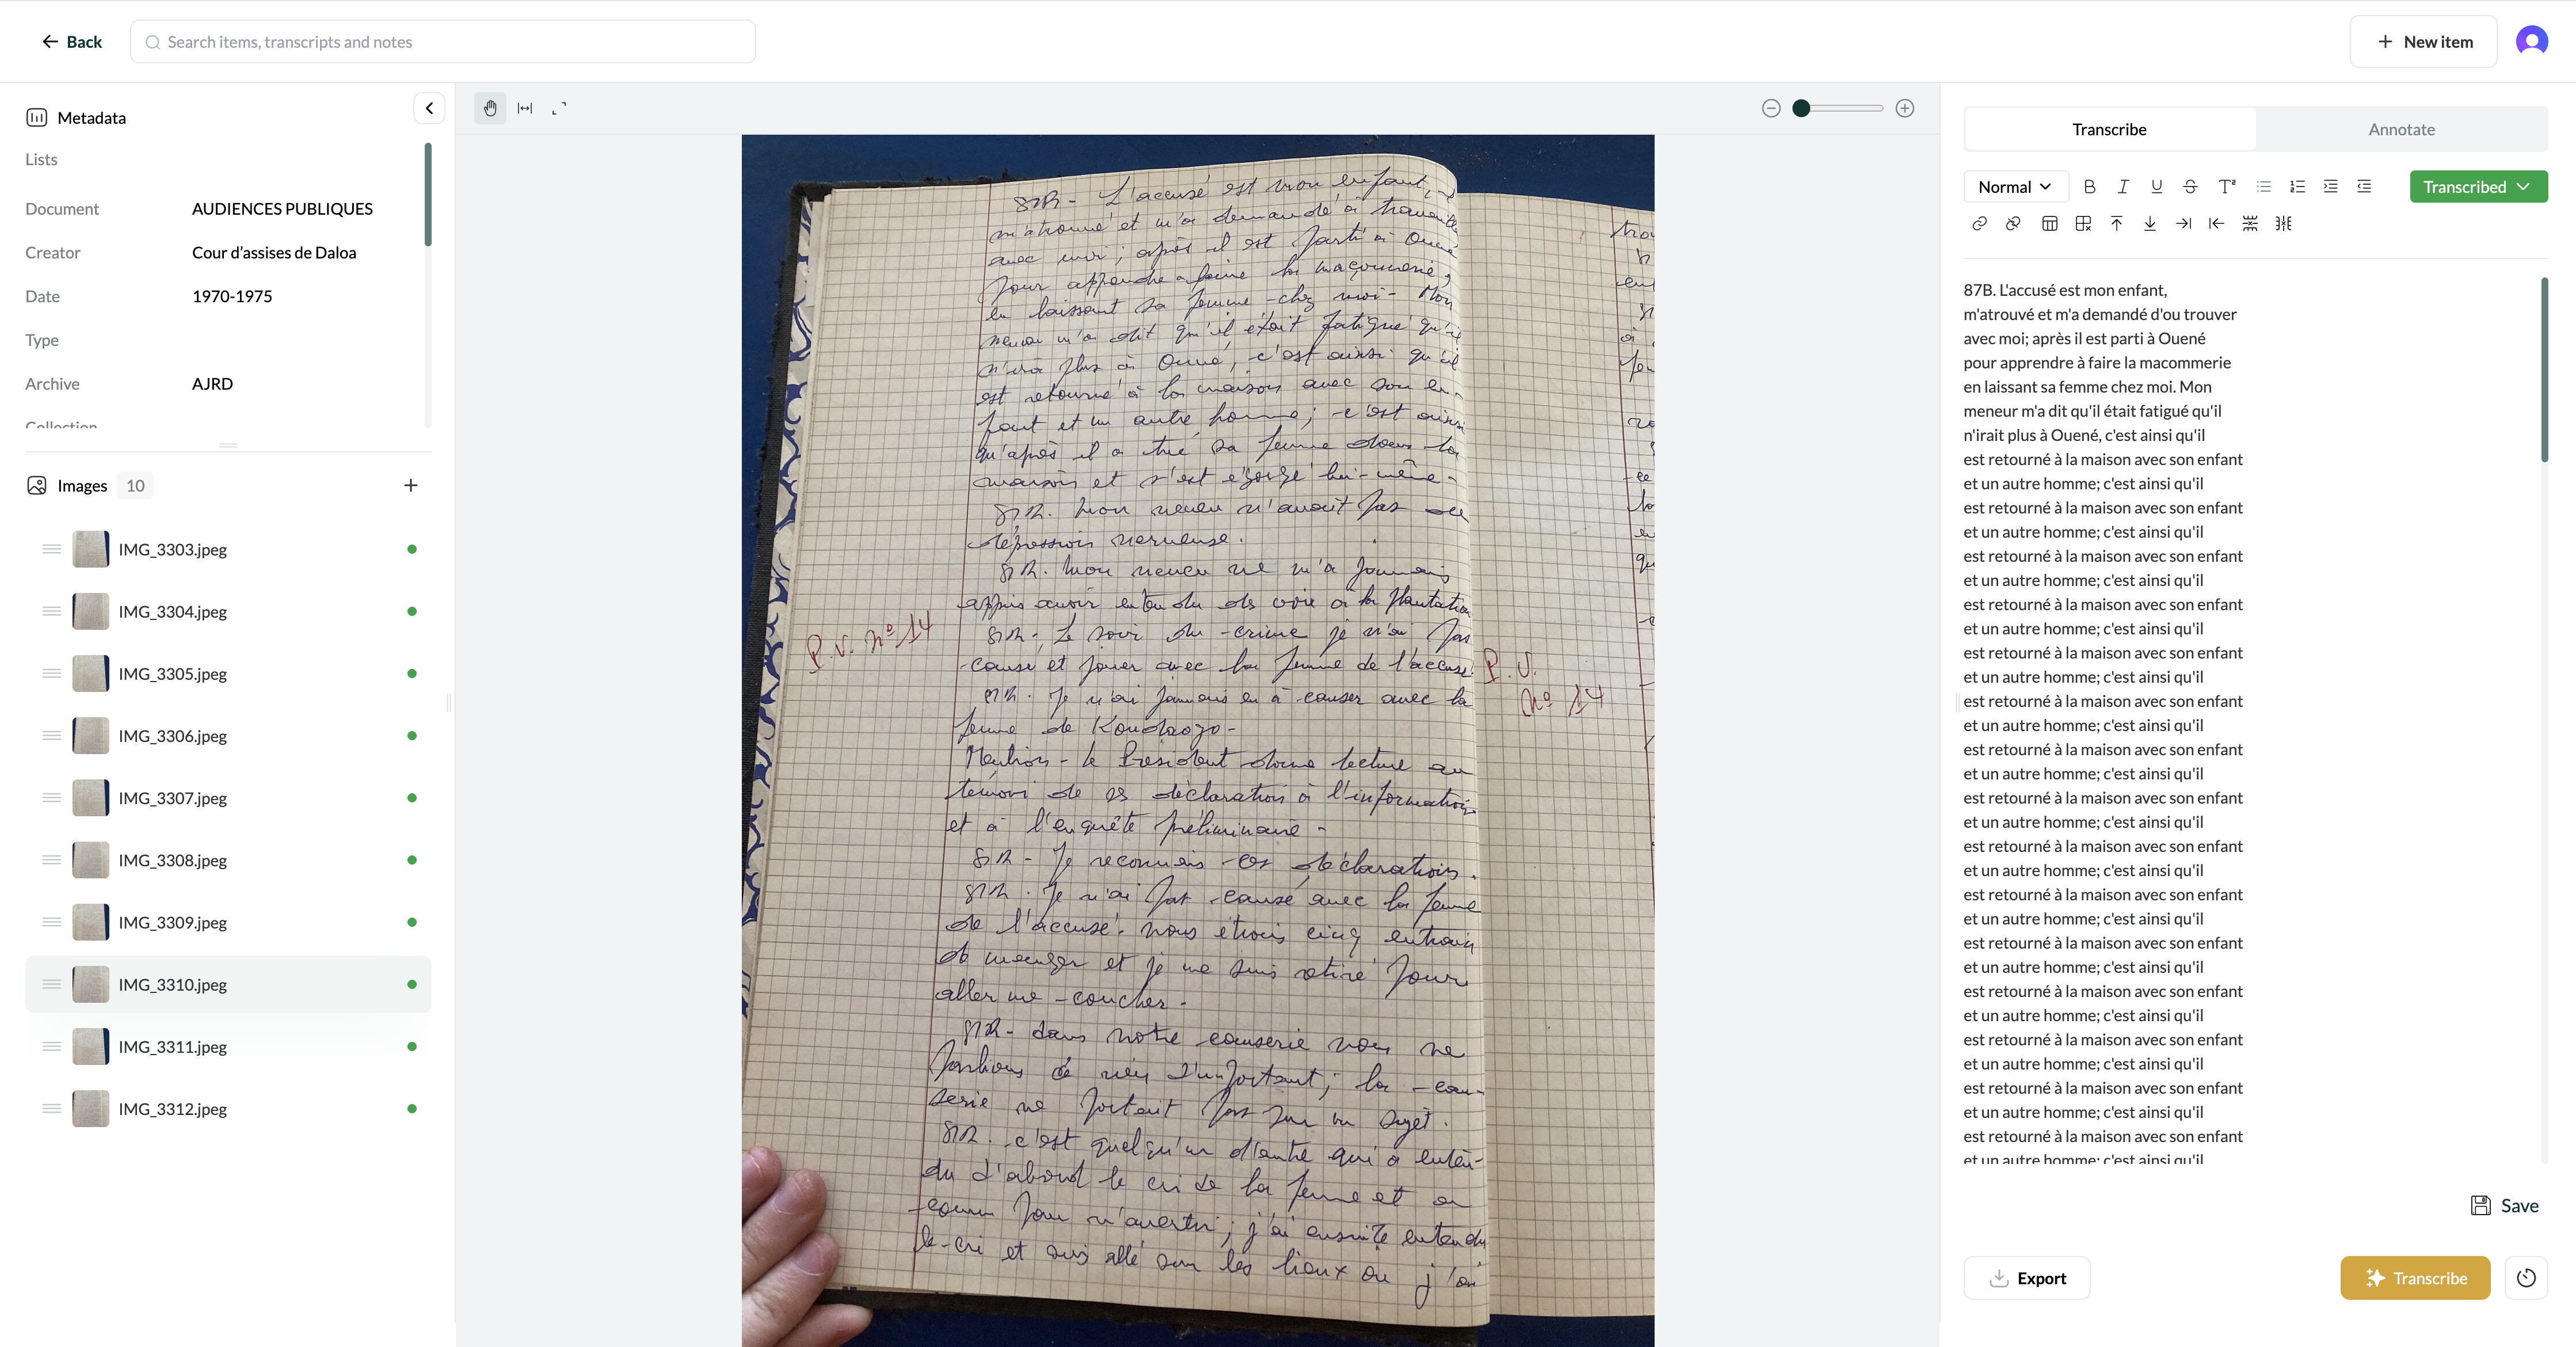 Back
Search items, transcripts and notes
New item
Metadata
Lists
Document AUDIENCES PUBLIQUES
Creator Cour d'assises de Daloa
Date 1970-1975
Type
Archive AJRD
Collection
Images 10
IMG_3303.jpeg
IMG_3304.jpeg
IMG_3305.jpeg
IMG_3306.jpeg
IMG_3307.jpeg
IMG_3308.jpeg
IMG_3309.jpeg
IMG_3310.jpeg
IMG_3311.jpeg
IMG_3312.jpeg
SR - L'accusé est mon enfant,
m'a trouvé et m'a demandé à travailler
avec moi ; après il est parti à Oumé
pour apprendre à faire la maçonnerie,
en laissant sa femme chez moi - Mon
neveu m'a dit qu'il était fatigué qu'il
n'ira plus à Oumé, c'est ainsi qu'il
est retourné à la maison avec son en-
fant et un autre homme ; c'est ainsi
qu'après il a tué sa femme dans la
maison et s'est égorgé lui-même -
SR. Mon neveu n'avait pas de
dépression nerveuse.
SR. Mon neveu ne m'a jamais
appris avoir entendu des voix à la plantation
SR - Le soir du crime je n'ai pas
causé et jouer avec la femme de l'accusé.
P.V. nº 14
P.V.
Nº 14
SR. Je n'ai jamais eu à causer avec la
femme de Koudaogo -
Mention - le Président donne lecture au
témoin de ses déclaration à l'information
et à l'enquête préliminaire -
SR - Je reconnais ces déclarations.
SR. Je n'ai pas causé avec la femme
de l'accusé. nous étions cinq entrain
de manger et je me suis retiré pour
aller me coucher.
SR - dans notre causerie nous ne
parlions de rien d'important ; la cau-
serie ne portait pas sur un sujet.
SR. c'est quelqu'un d'autre qui a enten-
du d'abord le cri de la femme et a
couru pour m'avertir ; j'ai ensuite entendu
le cri et suis allé sur les lieux où j'ai
Transcribe
Annotate
Normal
Transcribed
87B. L'accusé est mon enfant,
m'atrouvé et m'a demandé d'ou trouver
avec moi; après il est parti à Ouené
pour apprendre à faire la macommerie
en laissant sa femme chez moi. Mon
meneur m'a dit qu'il était fatigué qu'il
n'irait plus à Ouené, c'est ainsi qu'il
est retourné à la maison avec son enfant
et un autre homme; c'est ainsi qu'il
est retourné à la maison avec son enfant
et un autre homme; c'est ainsi qu'il
est retourné à la maison avec son enfant
et un autre homme; c'est ainsi qu'il
est retourné à la maison avec son enfant
et un autre homme; c'est ainsi qu'il
est retourné à la maison avec son enfant
et un autre homme; c'est ainsi qu'il
est retourné à la maison avec son enfant
et un autre homme; c'est ainsi qu'il
est retourné à la maison avec son enfant
et un autre homme; c'est ainsi qu'il
est retourné à la maison avec son enfant
et un autre homme; c'est ainsi qu'il
est retourné à la maison avec son enfant
et un autre homme; c'est ainsi qu'il
est retourné à la maison avec son enfant
et un autre homme; c'est ainsi qu'il
est retourné à la maison avec son enfant
et un autre homme; c'est ainsi qu'il
est retourné à la maison avec son enfant
et un autre homme; c'est ainsi qu'il
est retourné à la maison avec son enfant
et un autre homme; c'est ainsi qu'il
est retourné à la maison avec son enfant
et un autre homme; c'est ainsi qu'il
est retourné à la maison avec son enfant
et un autre homme; c'est ainsi qu'il
Save
Export
Transcribe